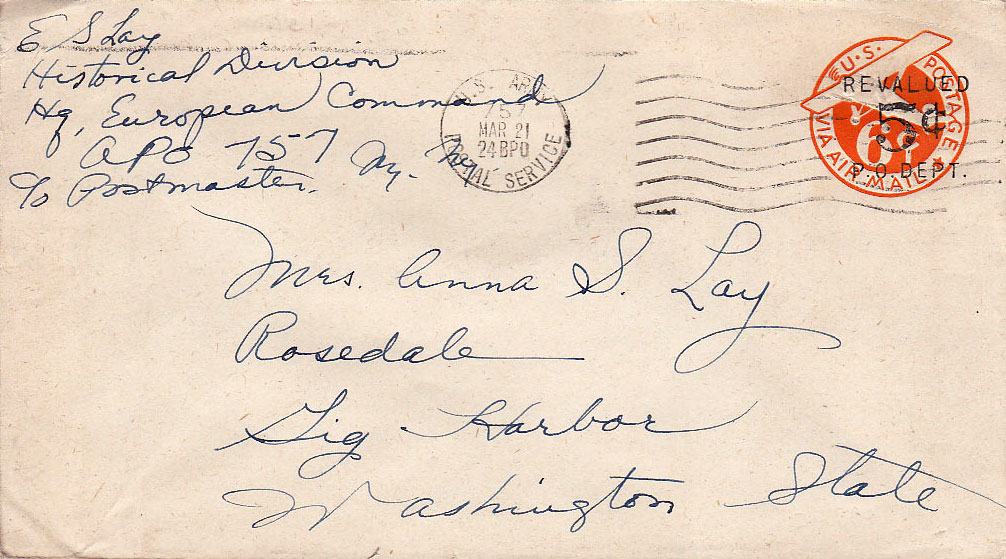 E S Lay
Historical Division
Hq, European Command
APO 757
c/o Postmaster. Ny. Ny
U.S. ARMY
757
MAR 21
24BPO
POSTAL SERVICE
U.S. POSTAGE
REVALUED
5¢
6¢
P.O.DEPT.
VIA AIR MAIL
Mrs. Anna S. Lay
Rosedale
Gig Harbor
Washington State